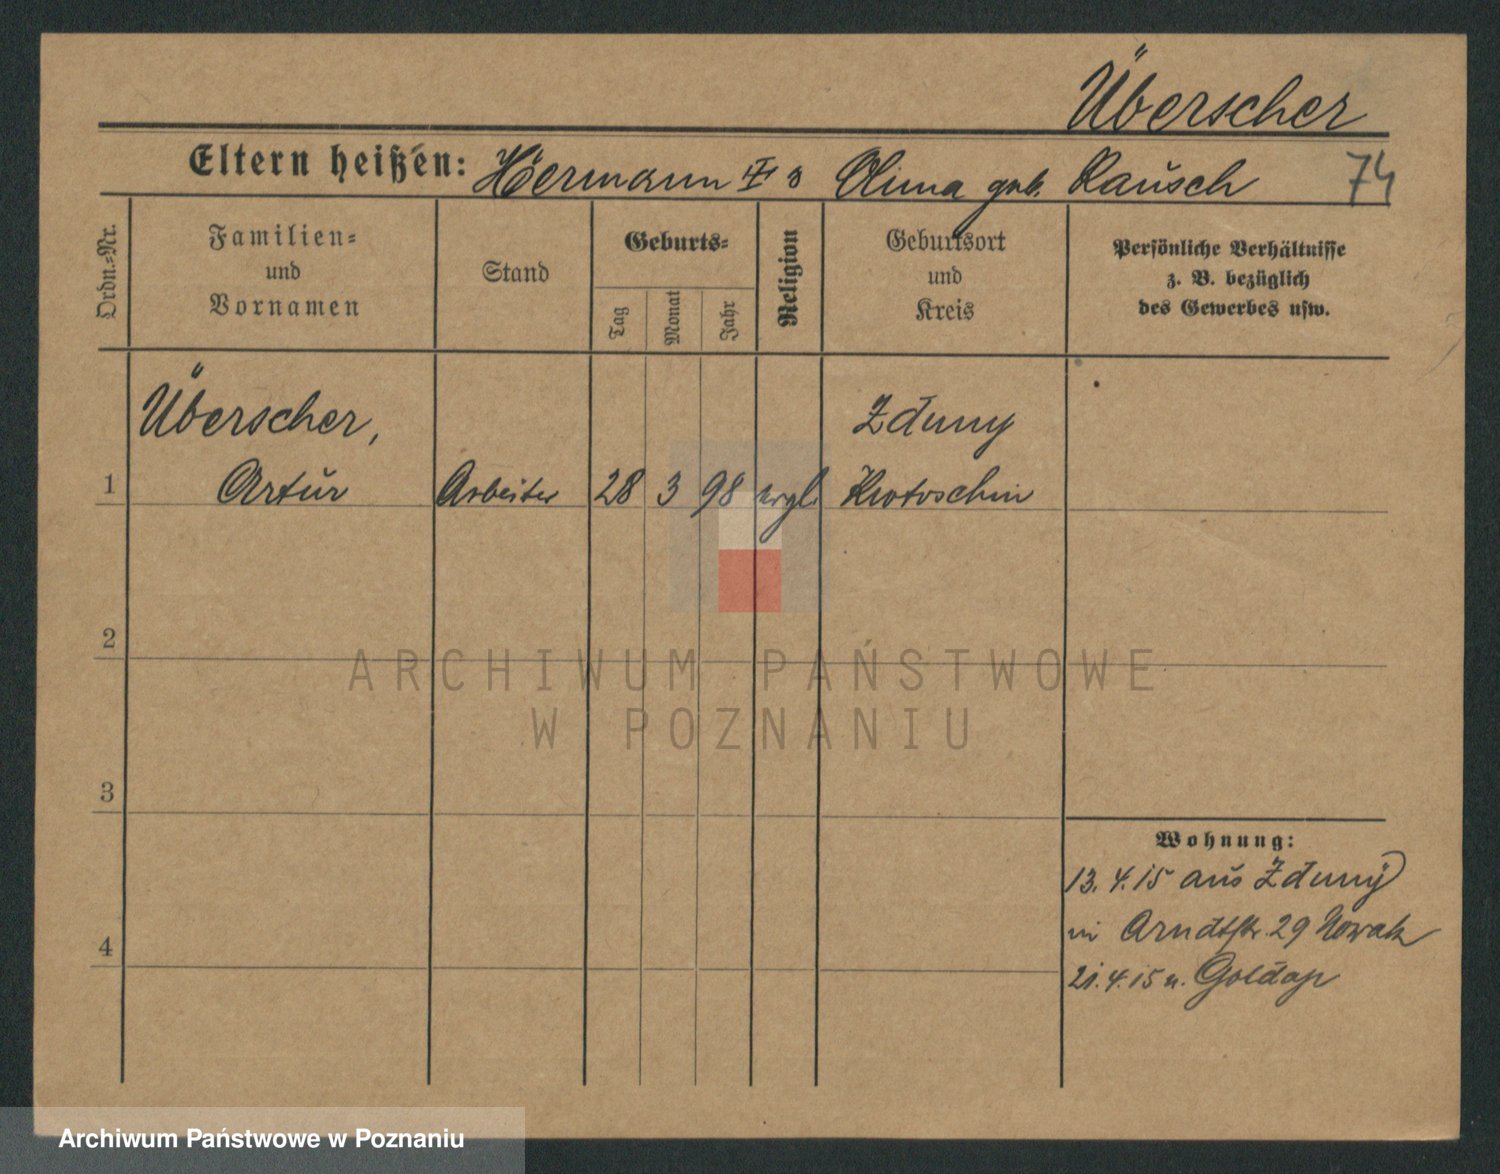 Überscher
Eltern heißen: Hermann u Anna geb. Rausch
74
Ordn.-Nr.
Familien-
und
Vornamen
Stand
Geburts-
Tag
Monat
Jahr
Religion
Geburtsort
und
Kreis
Persönliche Verhältnisse
z. B. bezüglich
des Gewerbes usw.
Überscher, Zduny
1 Artur Arbeiter 28 3 98 evgl. Krotoschin
2
ARCHIWUM PAŃSTWOWE
W POZNANIU
3
Wohnung:
13.4.15 aus Zduny
in Arndtstr. 29 Nowak
4
21.4.15 n. Goldap
Archiwum Państwowe w Poznaniu